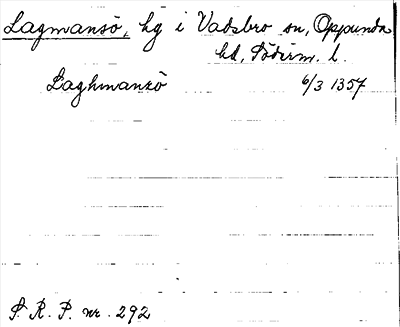 Lagmansö, hg i Vadsbro sn, Oppunda
hd, Söderm. l.
Laghmansö 6/3 1357
S. R. P. nr. 292